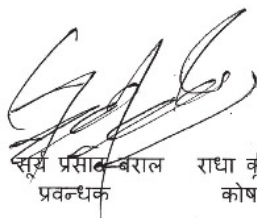 सूर्य प्रसाद बराल राधा
प्रवन्धक कोष